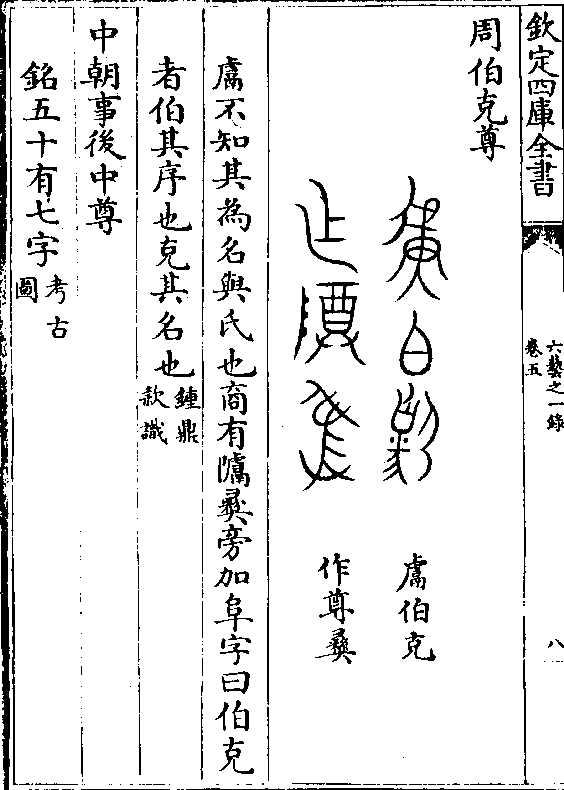 欽定四庫全書
六藝之一錄
卷五
八
周伯克尊
鬳伯克
作尊彞
鬳不知其為名與氏也商有彞旁加阜字曰伯克
者伯其序也克其名也鍾鼎
款識
中朝事後中尊
銘五十有七字考古
圖